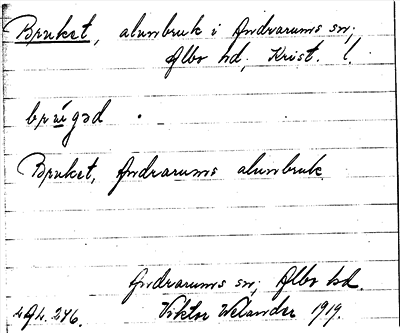 Bruket, alunbruk i Andrarums sn,
Albo hd, Krist. l.
Bruket, Andrarums alunbruk
Andrarums sn, Albo hd.
Viktor Welander 1919.